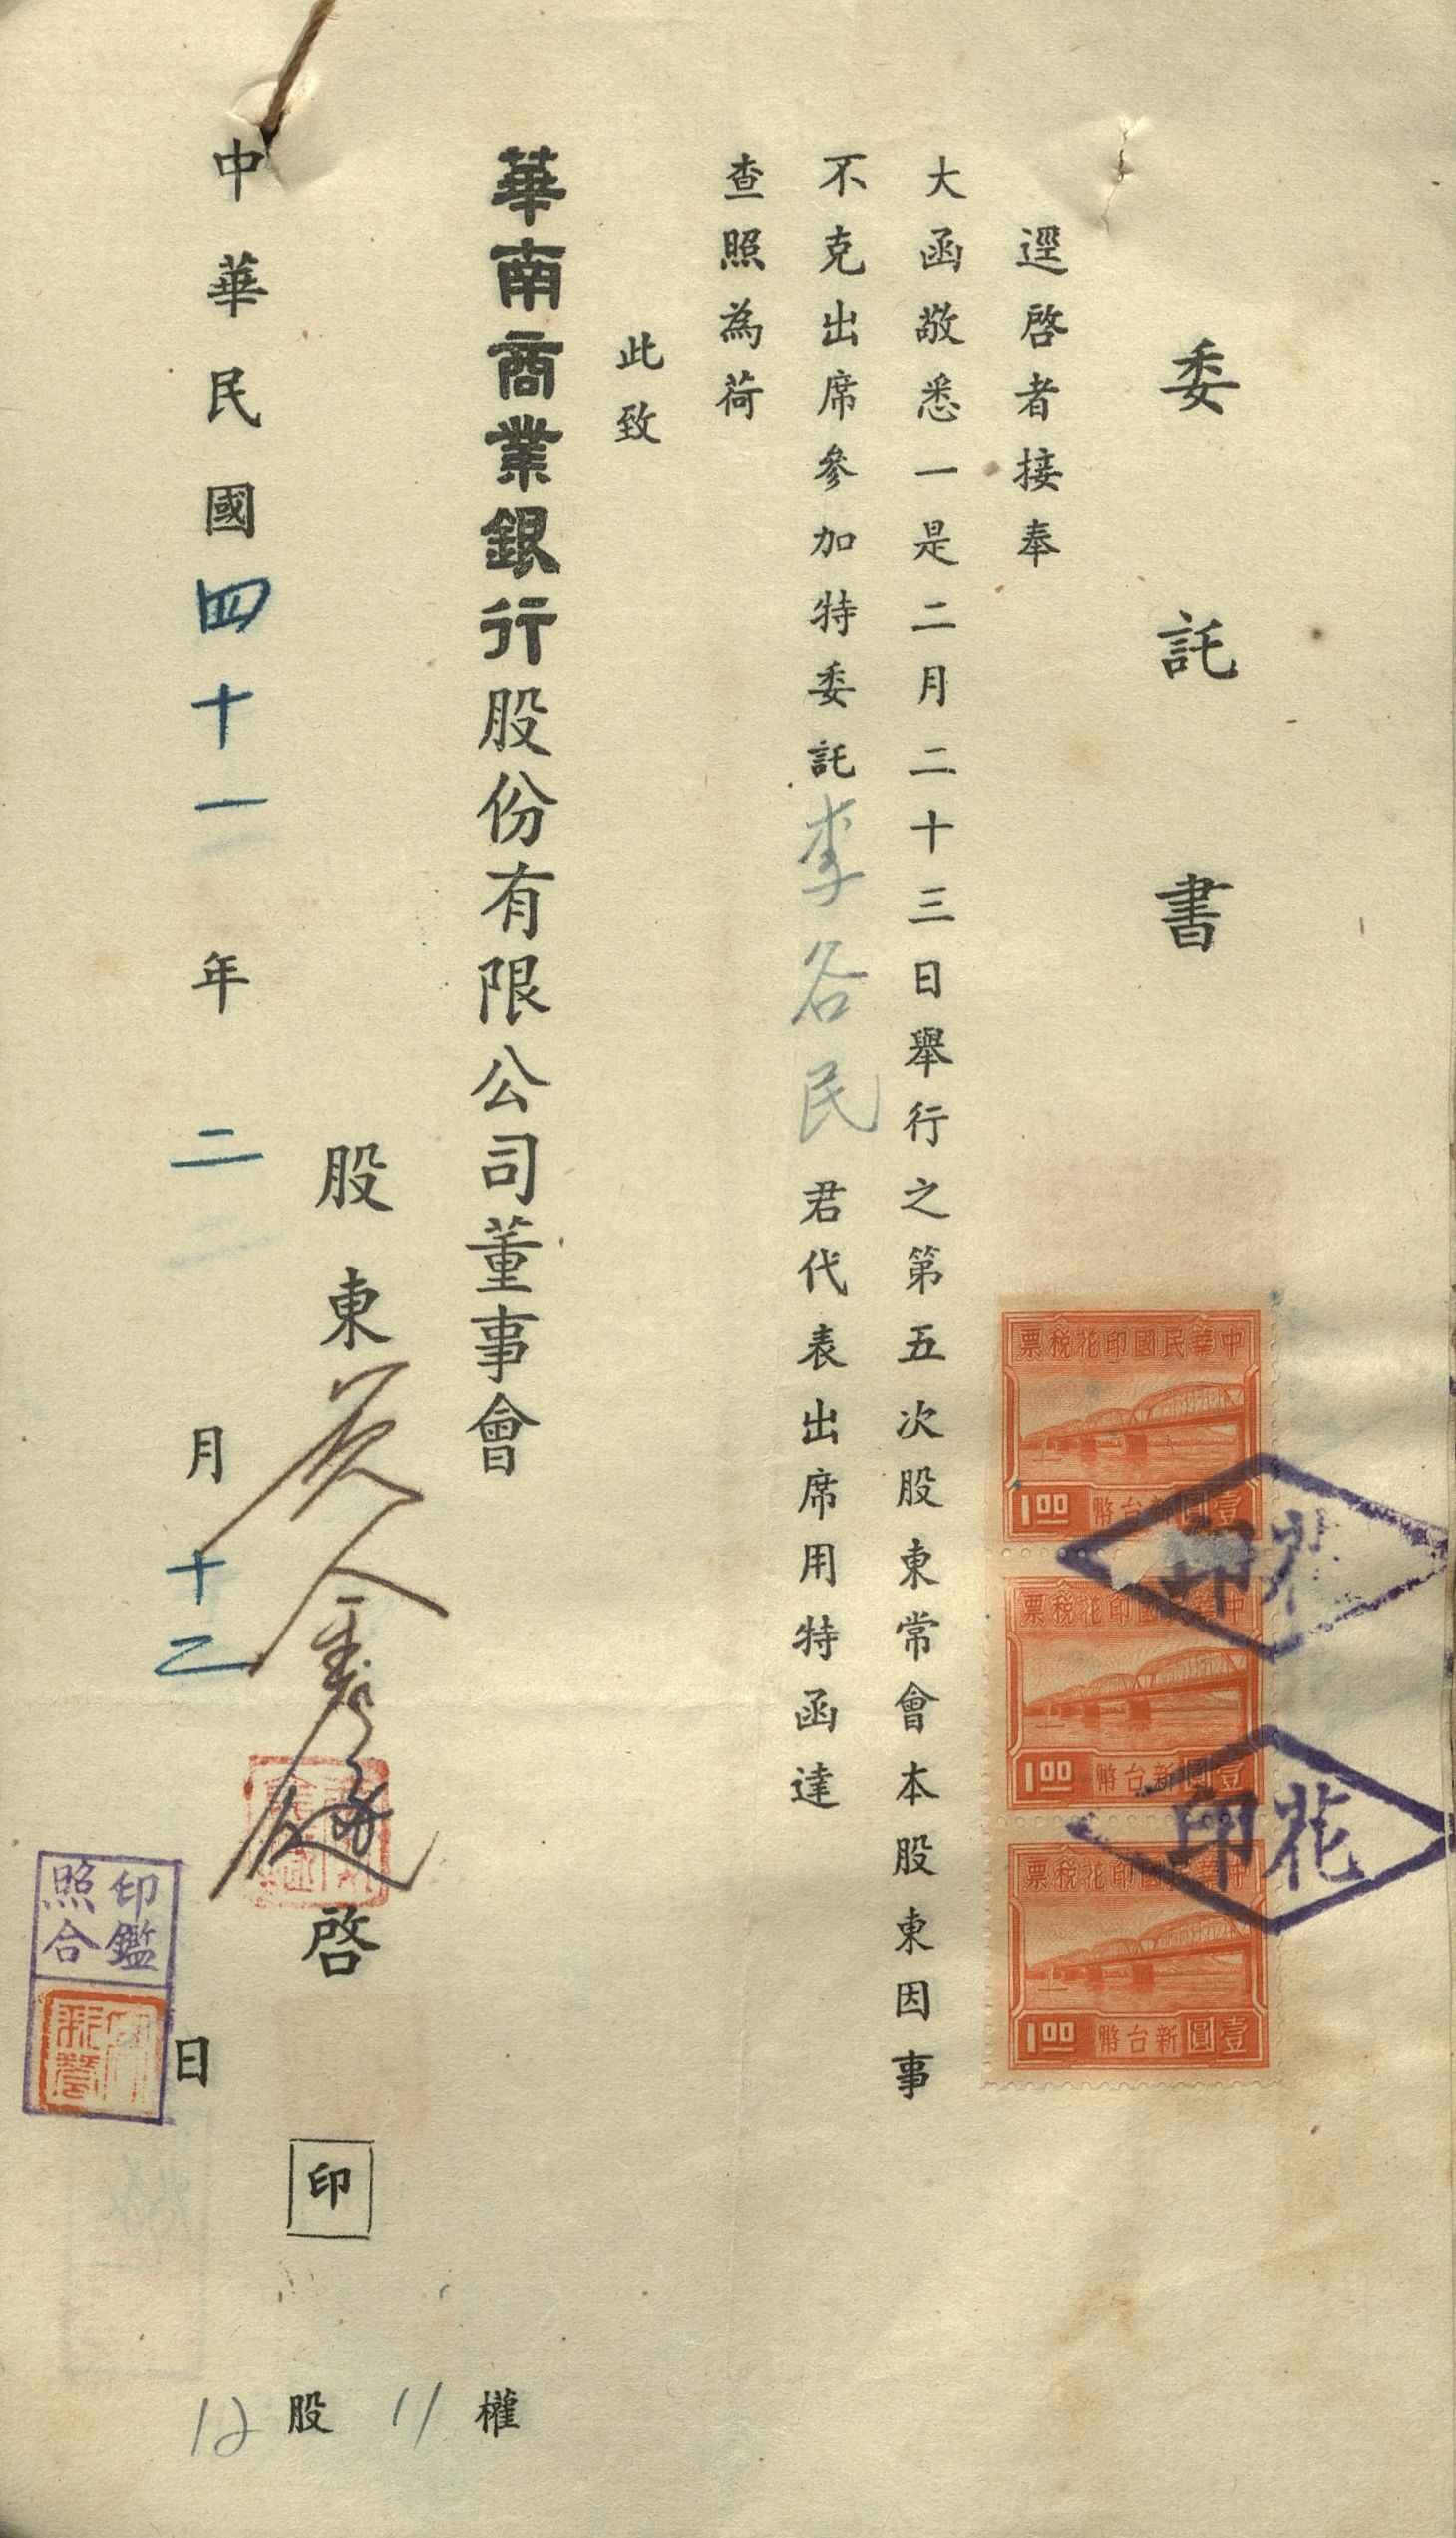 委託書
逕啓者接奉
大函敬悉一是二月二十三日舉行之第五次股東常會本股東因事
不克出席參加特委託李谷民君代表出席用特函達
查照為荷
此致
華南商業銀行股份有限公司董事會
股東 啓 印
中華民國四十一年二月十乙日
權 11
股 12
中華民國印花稅票
1.00 新台幣 壹圓
中華民國印花稅票
1.00 新台幣 壹圓
中華民國印花稅票
1.00 新台幣 壹圓
印花
印花
印鑑
照合